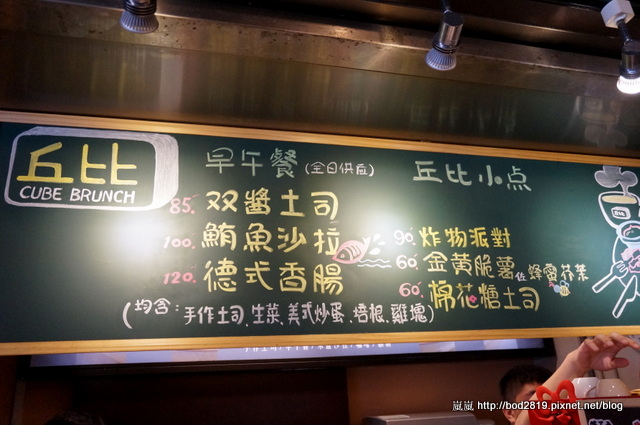 丘比
CUBE BRUNCH
早午餐 (全日供应)
85. 双醬土司
100. 鮪魚沙拉
120. 德式香腸
(均含:手作土司、生菜、美式炒蛋、培根、雞塊)
丘比小点
90. 炸物派對
60. 金黃脆薯佐蜂蜜芥茉
60. 棉花糖土司
嵐嵐 http://bod2819.pixnet.net/blog